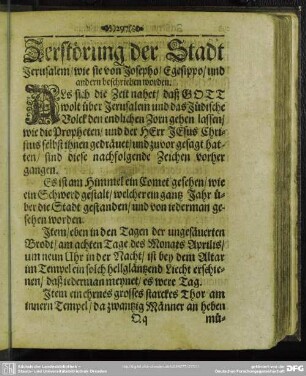 Zerstörung der Stadt
Jerusalem/ wie sie von Josepho/ Egesippo/ und
andern beschrieben worden.
ALs sich die Zeit nahet/ daß GOTT
wolt über Jerusalem und das Jüdische
Volck den endlichen Zorn gehen lassen/
wie die Propheten/ und der HErr JEsus Chri-
stus selbst ihnen gedräuet/ und zuvor gesagt hat-
ten/ sind diese nachfolgende Zeichen vorher
gangen.
Es ist am Himmel ein Comet gesehen/ wie
ein Schwerd gestalt/ welcher ein gantz Jahr ü-
ber die Stadt gestanden/ und von iederman ge-
sehen worden.
Item/ eben in den Tagen der ungesäuerten
Brodt/ am achten Tage des Monats Aprilis/
um neun Uhr in der Nacht/ ist bey dem Altar
im Tempel ein solch hellgläntzend Liecht erschie-
nen/ daß iederman meynet/ es were Tag.
Item ein ehrnes grosses starckes Thor am
innern Tempel/ da zwantzig Männer an heben
Qq
mü-